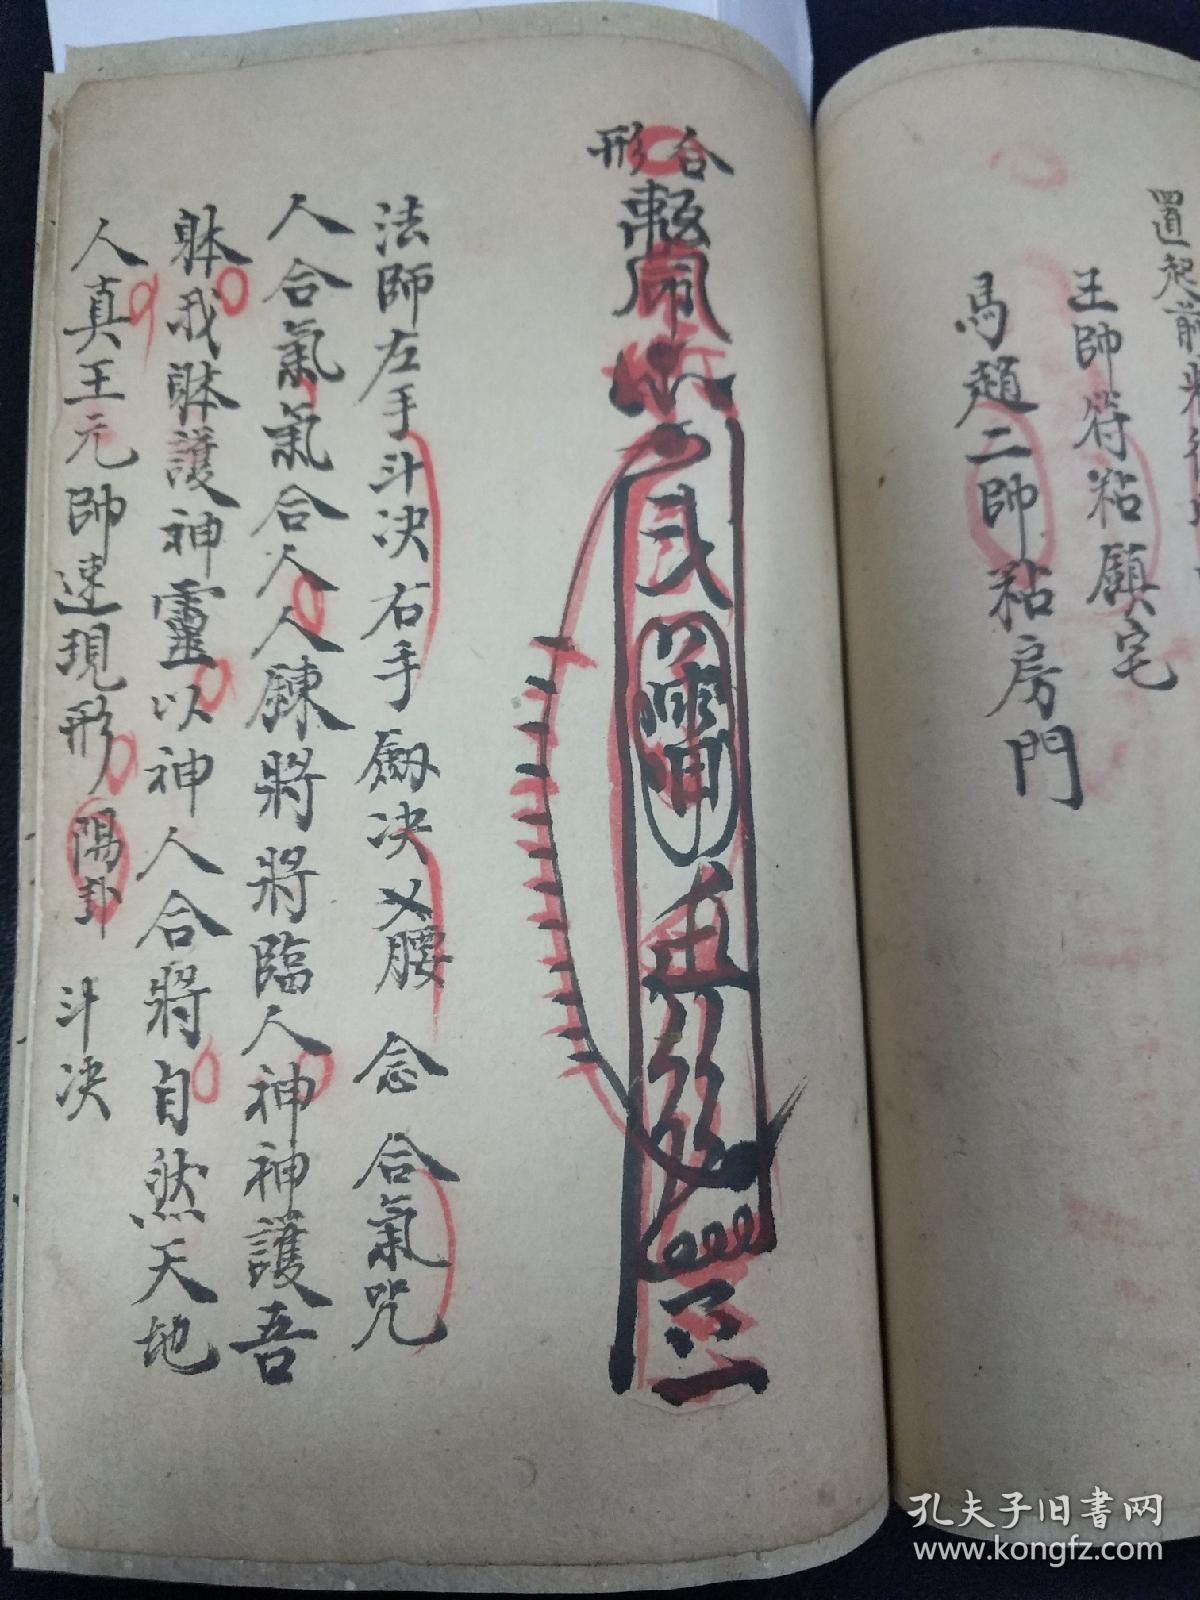 置起前将
王帥符粘鎮宅
馬趙二帥粘房門
合形
法師左手斗决右手劔决乂腰 念 合氣咒
人合氣氣合人人鍊將將臨人神神護吾
躰我躰護神靈以神人合將自然天地
人真王元帥速現形 陽卦 斗决
孔夫子旧书网
www.kongfz.com